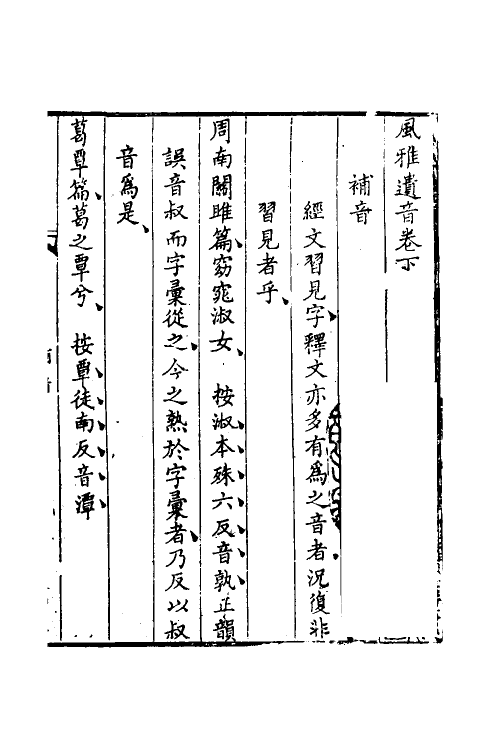 風雅遺音卷下
補音
經文習見字釋文亦多有爲之音者況復非
習見者乎
周南關雎篇窈窕淑女　按淑本殊六反音孰正韻
誤音叔而字彙從之今之熟於字彙者乃反以叔
音爲是
葛覃篇葛之覃兮　按覃徒南反音潭